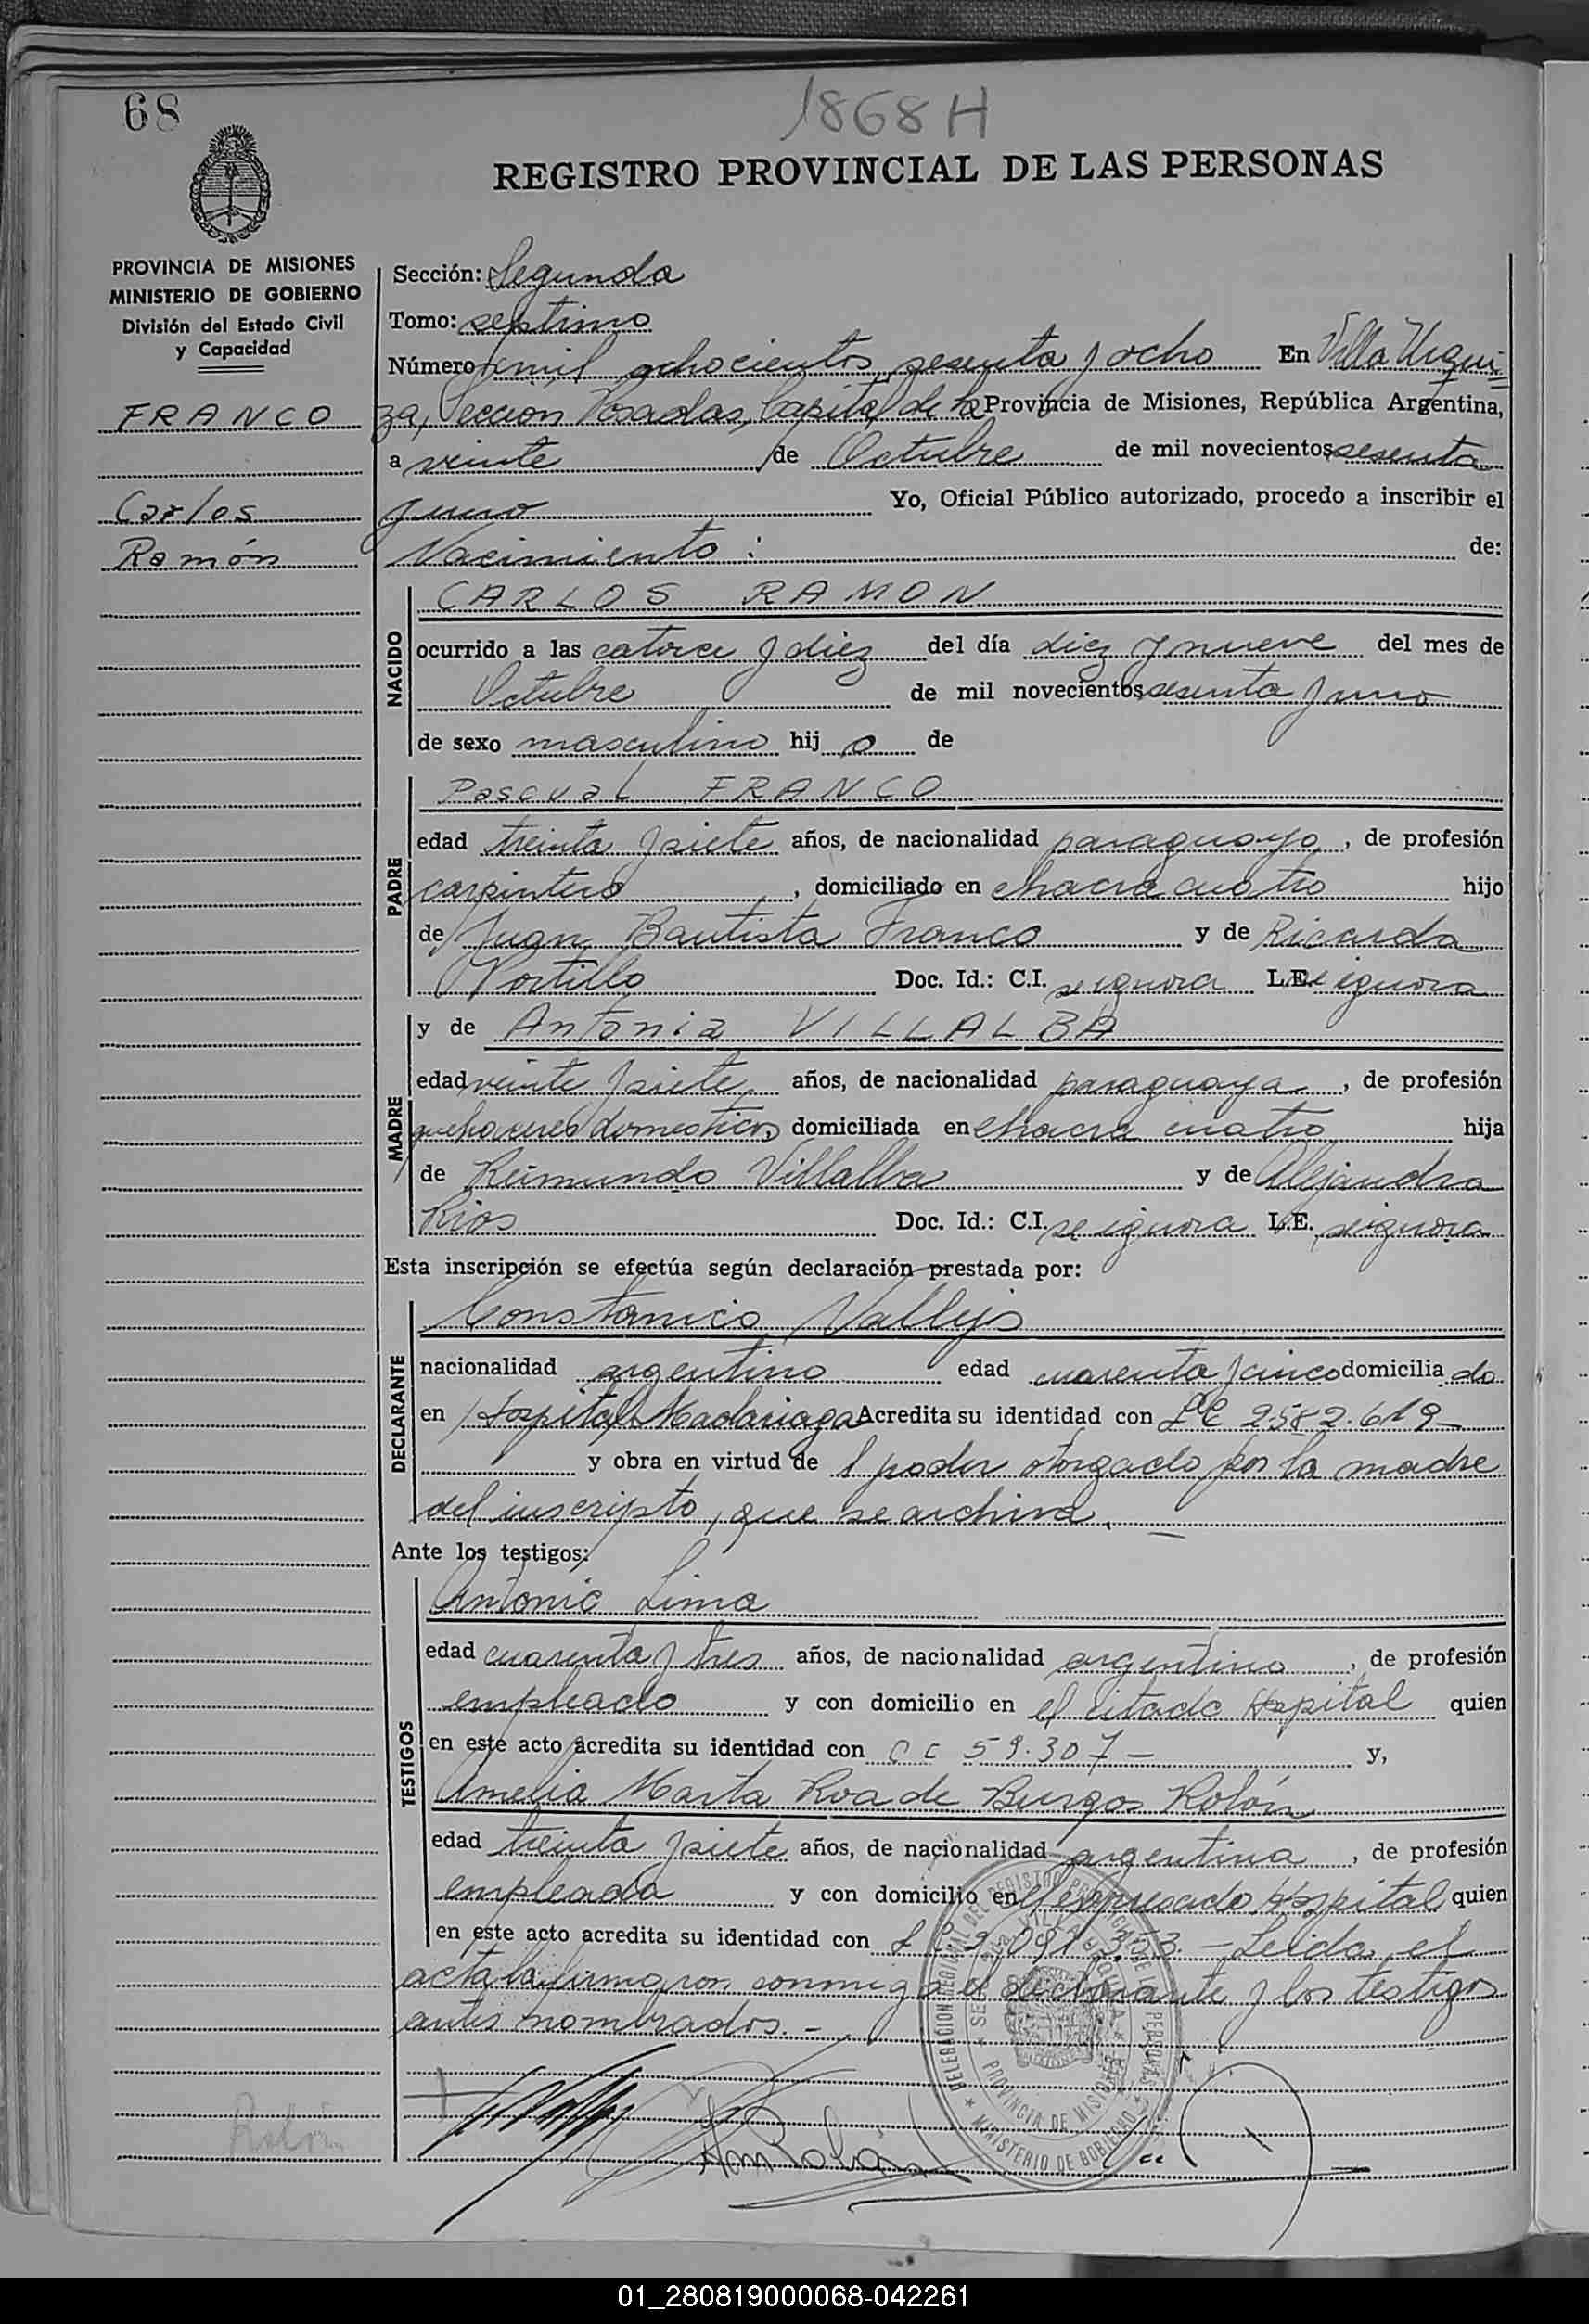 68
1868 H
REGISTRO PROVINCIAL DE LAS PERSONAS
PROVINCIA DE MISIONES
MINISTERIO DE GOBIERNO
División del Estado Civil
y Capacidad
FRANCO
Carlos
Ramón
Sección: Segunda
Tomo: septimo
Número mil ochocientos sesenta y ocho En Villa Urqui=
za, Sección Posadas, Capital de la Provincia de Misiones, República Argentina,
a veinte de Octubre de mil novecientos sesenta
y uno Yo, Oficial Público autorizado, procedo a inscribir el
Nacimiento: de:
NACIDO
CARLOS RAMON
ocurrido a las catorce y diez del día diez y nueve del mes de
Octubre de mil novecientos sesenta y uno
de sexo masculino hij o de
PADRE
Pascual FRANCO
edad treinta y siete años, de nacionalidad paraguayo, de profesión
carpintero, domiciliado en chacra cuatro hijo
de Juan Bautista Franco y de Ricarda
Portillo Doc. Id.: C.I. se ignora L.E. se ignora
MADRE
y de Antonia VILLALBA
edad veinte y siete años, de nacionalidad paraguaya, de profesión
quehaceres domesticos domiciliada en chacra cuatro hija
de Reimundo Villalba y de Alejandra
Rios Doc. Id.: C.I. se ignora L.E. se ignora
Esta inscripción se efectúa según declaración prestada por:
DECLARANTE
Constancio Vallejs
nacionalidad argentino edad cuarenta y cinco domicilia do
en Hospital Madariaga Acredita su identidad con 2.582.619-
y obra en virtud de l poder otorgado por la madre
del inscripto, que se archiva.-
Ante los testigos:
TESTIGOS
Antonio Lima
edad cuarenta y tres años, de nacionalidad argentino, de profesión
empleado y con domicilio en el citado Hospital quien
en este acto acredita su identidad con 59.307- y,
Amelia Marta Roa de Burgos Rolón
edad treinta y siete años, de nacionalidad argentina, de profesión
empleada y con domicilio en el expresado Hospital quien
en este acto acredita su identidad con 353.- Leida el
acta la firmaron conmigo el declarante y los testigos
antes nombrados.-
DELEGACION REGIONAL DEL REGISTRO PROVINCIAL DE LAS PERSONAS
VILLA URQUIZA
PROVINCIA DE MISIONES
MINISTERIO DE GOBIERNO
Rolón
01_280819000068-042261